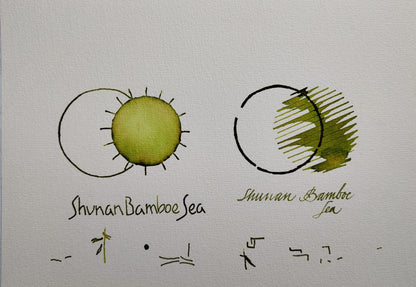 Shunan Bamboe Sea
Shunan Bamboe
Sea